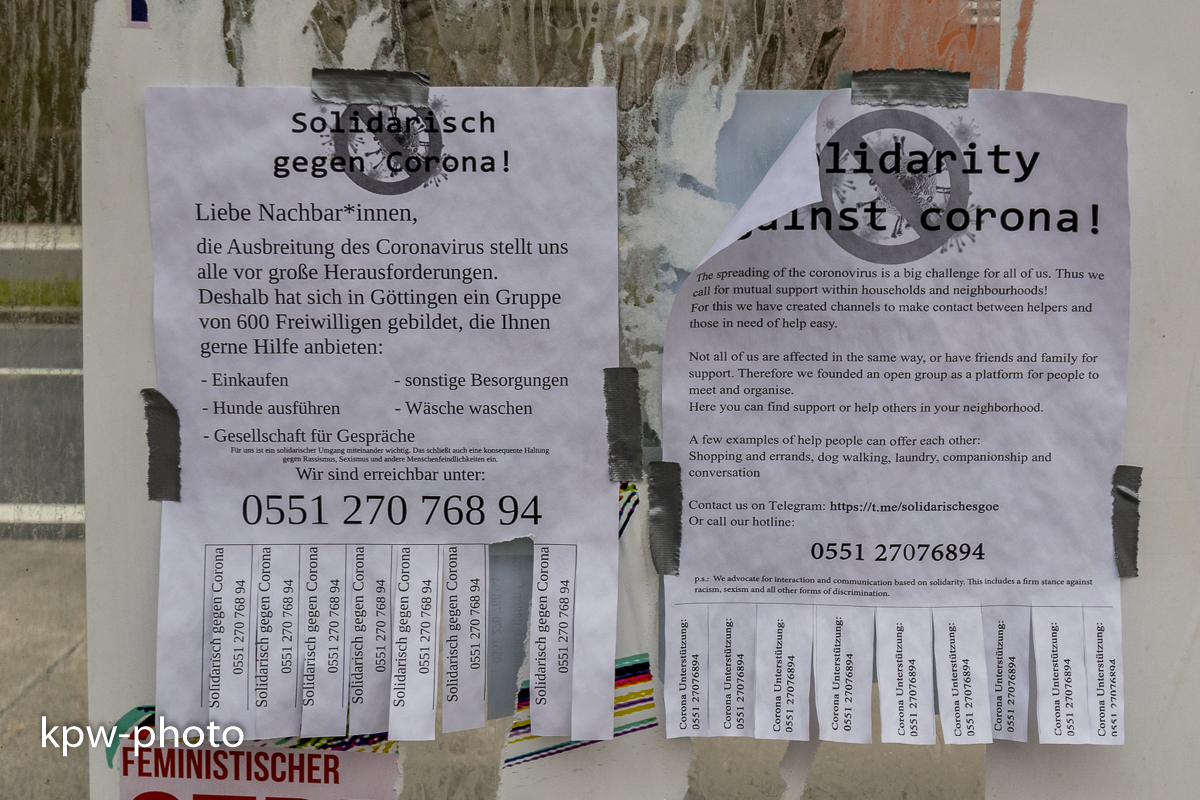 Solidarisch
gegen Corona!
Liebe Nachbar*innen,
die Ausbreitung des Coronavirus stellt uns
alle vor große Herausforderungen.
Deshalb hat sich in Göttingen ein Gruppe
von 600 Freiwilligen gebildet, die Ihnen
gerne Hilfe anbieten:
- Einkaufen
- sonstige Besorgungen
- Hunde ausführen
- Wäsche waschen
- Gesellschaft für Gespräche
Für uns ist ein solidarischer Umgang miteinander wichtig. Das schließt auch eine konsequente Haltung
gegen Rassismus, Sexismus und andere Menschenfeindlichkeiten ein.
Wir sind erreichbar unter:
0551 270 768 94
Solidarisch gegen Corona
0551 270 768 94
Solidarisch gegen Corona
0551 270 768 94
Solidarisch gegen Corona
0551 270 768 94
Solidarisch gegen Corona
0551 270 768 94
Solidarisch gegen Corona
0551 270 768 94
Solidarisch gegen Corona
0551 270 768 94
Solidarisch gegen Corona
0551 270 768 94
lidarity
ainst corona!
The spreading of the coronovirus is a big challenge for all of us. Thus we
call for mutual support within households and neighbourhoods!
For this we have created channels to make contact between helpers and
those in need of help easy.
Not all of us are affected in the same way, or have friends and family for
support. Therefore we founded an open group as a platform for people to
meet and organise.
Here you can find support or help others in your neighborhood.
A few examples of help people can offer each other:
Shopping and errands, dog walking, laundry, companionship and
conversation
Contact us on Telegram: https://t.me/solidarischesgoe
Or call our hotline:
0551 27076894
p.s.: We advocate for interaction and communication based on solidarity. This includes a firm stance against
racism, sexism and all other forms of discrimination.
Corona Unterstützung:
0551 27076894
Corona Unterstützung:
0551 27076894
Corona Unterstützung:
0551 27076894
Corona Unterstützung:
0551 27076894
Corona Unterstützung:
0551 27076894
Corona Unterstützung:
0551 27076894
Corona Unterstützung:
0551 27076894
Corona Unterstützung:
0551 27076894
Corona Unterstützung:
0551 27076894
kpw-photo
FEMINISTISCHER